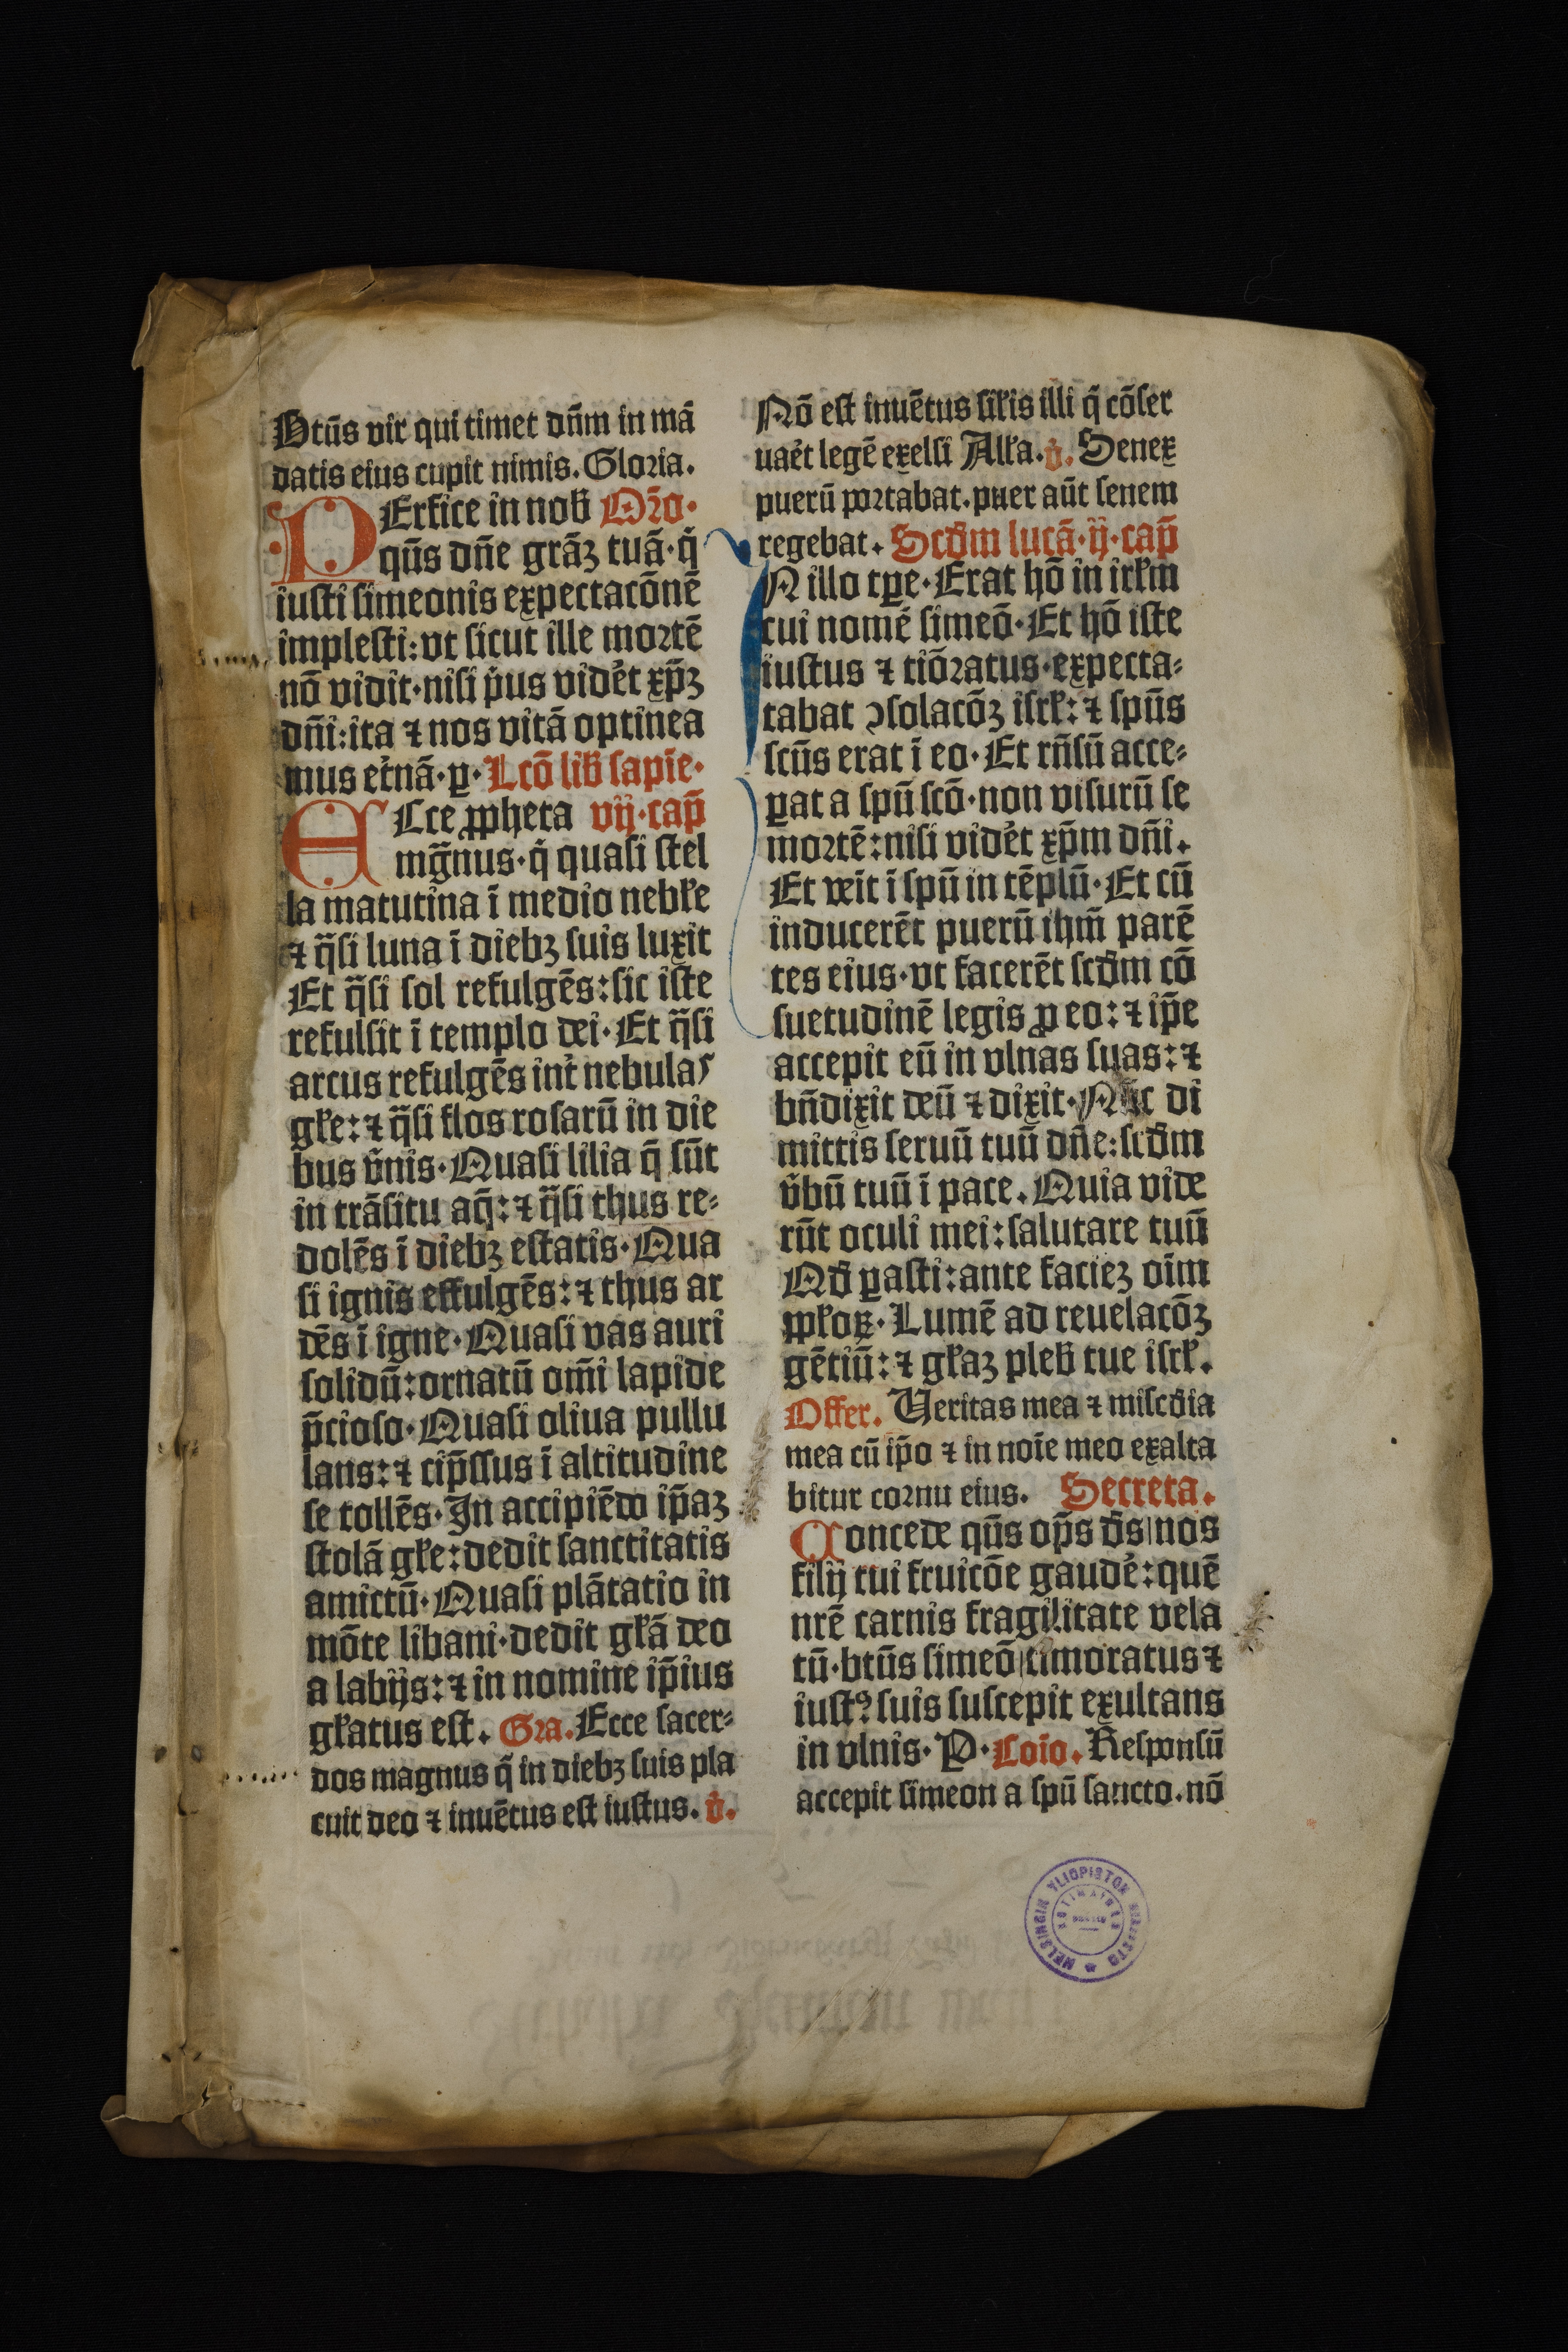 Btūs vir qui timet dñm in mā
datis eius cupit nimis. Gloria.
PErfice in nob̄ Or̄o.
qūs dñe grāꝫ tuā·q̄
iusti simeonis expectacōnē
implesti: vt sicut ille mortē
nō vidit·nisi p̍us vidēt xp̄ꝫ
dñi: ita ⁊ nos vitā optinea
mus et̍nā·ꝑ· Lcō lib̄ sapīe·
ECce ꝓpheta vij·cap̄
mḡnus·q̍ quasi stel
la matutina ī medio nebƚe
⁊ q̄si luna ī diebꝫ suis luxit
Et q̄si sol refulgēs: sic iste
refulsit ī templo dei·Et q̄si
arcus refulgēs int̍ nebulas
gƚe: ⁊ q̄si flos rosarū in die
bus v̄nis·Quasi lilia q̄ sūt
in trāsitu aq̄: ⁊ q̄si thus re⸗
dolēs ī diebꝫ estatis·Qua
si ignis effulgēs: ⁊ thus ar
dēs ī igne·Quasi vas auri
solidū: ornatū om̄i lapide
p̄cioso·Quasi oliua pullu
lans: ⁊ cip̄ssus ī altitudine
se tollēs·In accipiēdo ip̄aꝫ
stolā gƚe: dedit sanctitatis
amictū·Quasi plātatio in
mōte libani·dedit gƚā deo
a labijs: ⁊ in nomine ip̄ius
gƚatus est. Gra. Ecce sacer⸗
dos magnus q̍ in diebꝫ suis pla
cuit deo ⁊ inuētus est iustus. v̄.
Nō est inuētus siƚis illi q̍ cōser
uaēt legē exelsi Alƚa. v̄. Senex
puerū portabat. puer aūt senem
regebat. Scd̄m lucā·ij·cap̄
N illo tꝑe·Erat hō in irƚm
cui nomē simeō·Et hō iste
iustus ⁊ tiōratus·expecta⸗
tabat ↄsolacōꝫ isrƚ: ⁊ spūs
scūs erat ī eo·Et rñsū acce⸗
ꝑat a spū scō·non visurū se
mortē: nisi vidēt xp̄m dñi.
Et veīt ī spū in tēplū·Et cū
inducerēt puerū ihm̄ parē
tes eius·vt facerēt scd̄m cō
suetudinē legis ꝓ eo: ⁊ ip̄e
accepit eū in vlnas suas: ⁊
bñdixit deū ⁊ dixit·Nūc di
mittis seruū tuū dñe: scd̄m
v̄bū tuū ī pace. Quia vide
rūt oculi mei: salutare tuū
Qd̄ ꝑasti: ante facieꝫ oīm
ppƚoꝝ·Lumē ad reuelacōꝫ
gētiū: ⁊ gƚaꝫ pleb̄ tue isrƚ.
Offer. Ueritas mea ⁊ miscd̄ia
mea cū ip̄o ⁊ in noīe meo exalta
bitur cornu eius. Secreta.
Concede qūs op̄s d̄s nos
filij tui fruicōe gaudē: quē
nr̄ē carnis fragilitate vela
tū·btūs simeō timoratus ⁊
iustꝰ suis suscepit exultans
in vlnis·P· Coīo. Responsū
accepit simeon a spū sancto. nō
HELSINGIN YLIOPISTON KIRJASTO